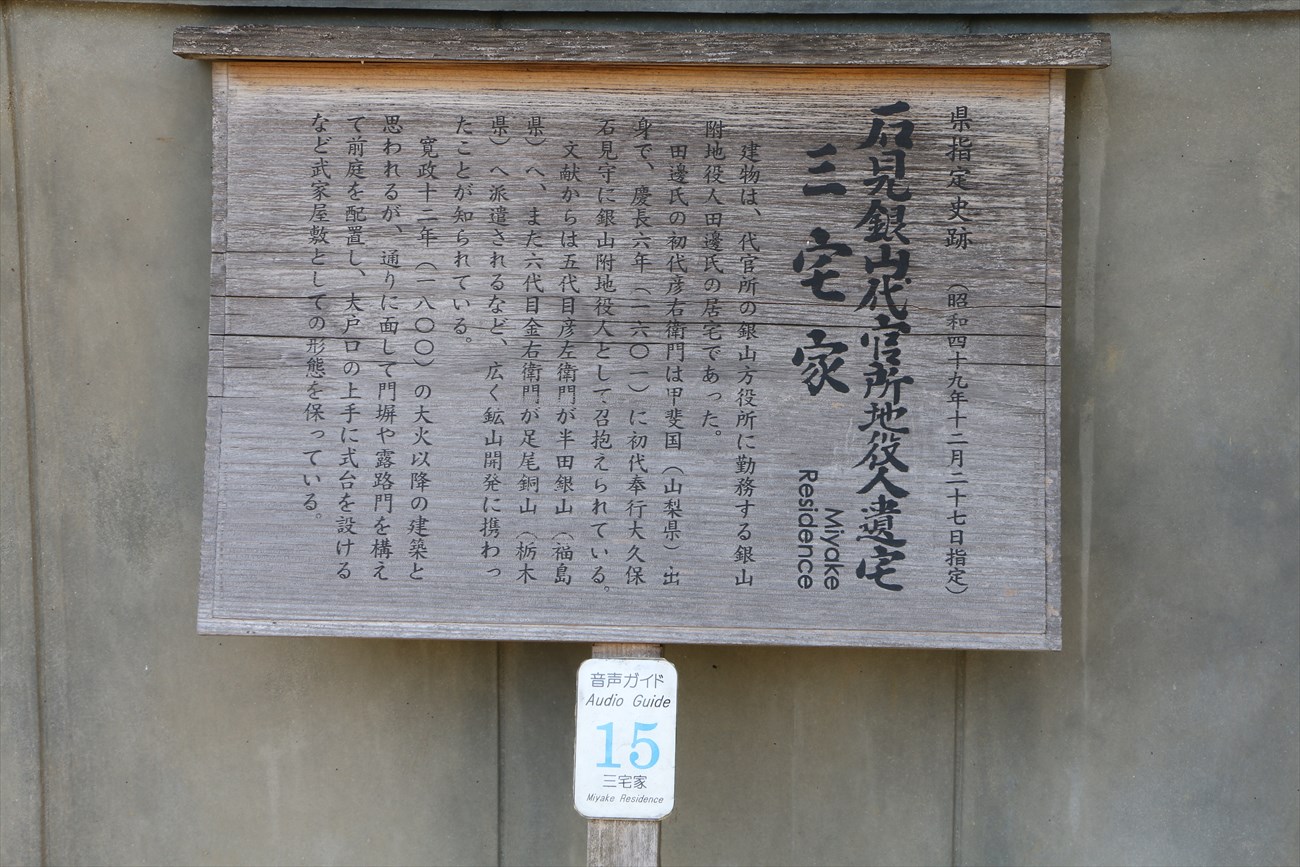 県指定史跡 (昭和四十九年十二月二十七日指定)
石見銀山代官所地役人遺宅
三宅家
Miyake
Residence
建物は、代官所の銀山方役所に勤務する銀山
附地役人田邊氏の居宅であった。
田邊氏の初代彦右衛門は甲斐国(山梨県)出
身で、慶長六年(一六〇一)に初代奉行大久保
石見守に銀山附地役人として召抱えられている。
文献からは五代目彦左衛門が半田銀山(福島
県)へ、また六代目金右衛門が足尾銅山(栃木
県)へ派遣されるなど、広く鉱山開発に携わっ
たことが知られている。
寛政十二年(一八〇〇)の大火以降の建築と
思われるが、通りに面して門塀や露路門を構え
て前庭を配置し、大戸口の上手に式台を設ける
など武家屋敷としての形態を保っている。
音声ガイド
Audio Guide
15
三宅家
Miyake Residence